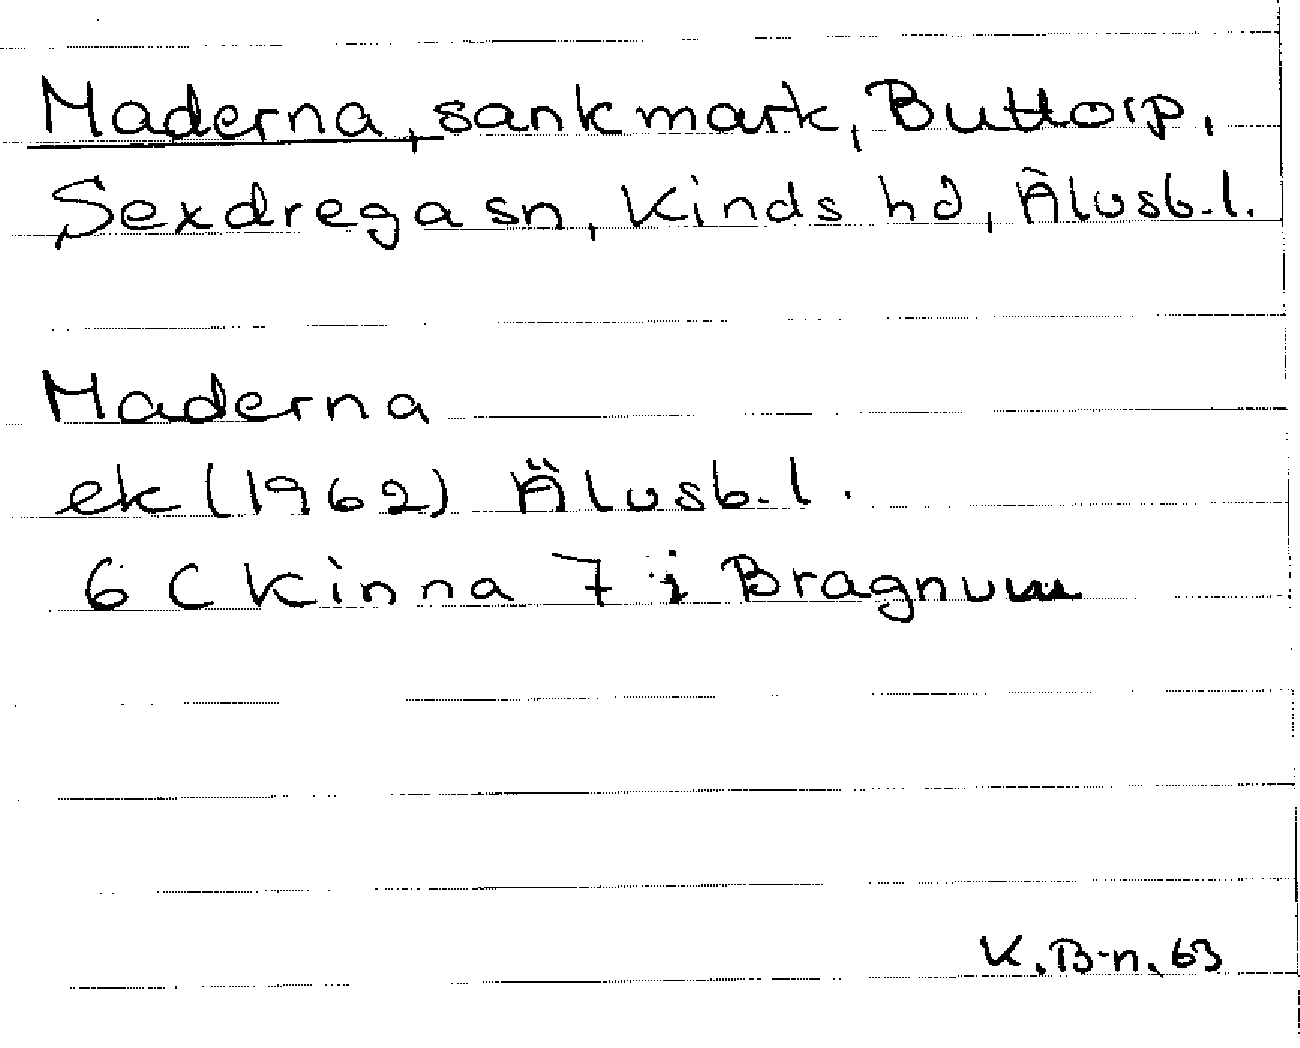 Maderna, sankmark, Buttorp,
Sexdrega sn, Kinds hd, Älvsb.l.
Maderna
ek (1962) Älvsb.l.
6 C Kinna 7 i Bragnum
K.B-n. 63